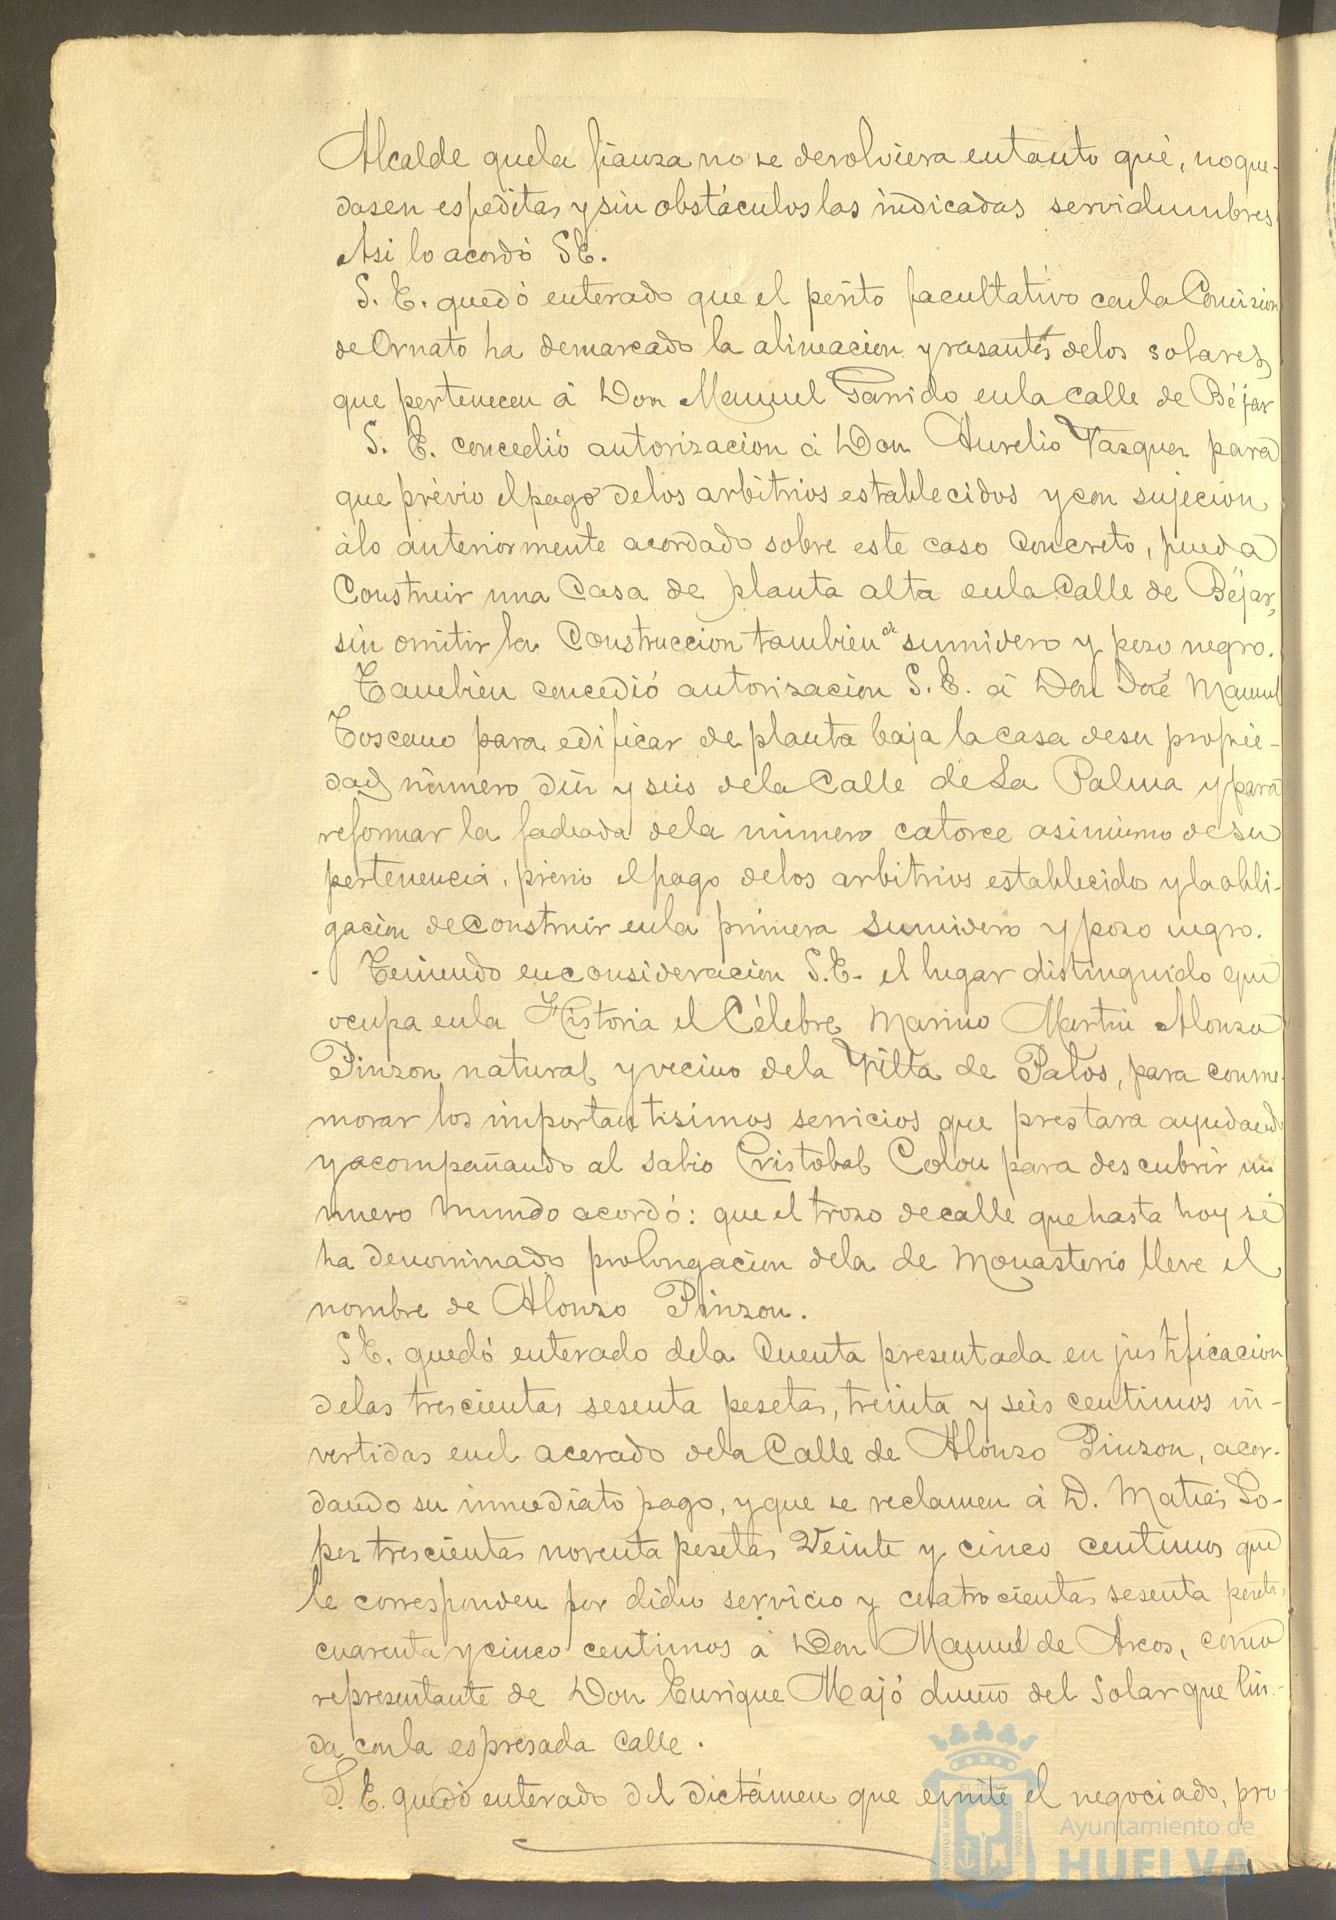 Alcalde que la fianza no se devolviera en tanto que, no que-
dasen espeditas y sin obstáculos las indicadas servidumbres
Asi lo acordó S E.
S. E. quedó enterado que el perito facultativo con la Comision
de Ornato ha demarcado la alineacion y rasantes de los solares
que pertenecen á Don Manuel Garrido en la calle de Béjar
S. E. concedió autorizacion á Don Aurelio Vazquez para
que prévio el pago de los arbitrios establecidos y con sujecion
á lo anteriormente acordado sobre este caso concreto, pueda
Construir una Casa de planta alta en la Calle de Béjar,
sin omitir la Construccion tambien de sumidero y pozo negro.
Tambien concedió autorizacion S. E. á Don José Manuel
Toscano para edificar de planta baja la casa de su propie-
dad número diez y seis de la Calle de La Palma y para
reformar la fachada de la número catorce asimismo de su
pertenencia, prévio el pago de los arbitrios establecidos y la obli-
gacion de construir en la primera sumidero y pozo negro.
Teniendo en consideracion S. E. el lugar distinguido que
ocupa en la Historia el Célebre Marino Martin Alonzo
Pinzon natural y vecino de la Villa de Palos, para conme-
morar los importantisimos servicios que prestara ayudando
y acompañando al sabio Cristobal Colon para descubrir un
nuevo mundo acordó: que el trozo de calle que hasta hoy se
ha denominado prolongacion de la de Monasterio lleve el
nombre de Alonzo Pinzon.
S E. quedó enterado de la Cuenta presentada en justificacion
de las trescientas sesenta pesetas, treinta y seis centimos in-
vertidas en el acerado de la Calle de Alonzo Pinzon, acor-
dando su inmediato pago, y que se reclamen á D. Matias Lo-
pez trescientas noventa pesetas Veinte y cinco centimos que
le corresponden por dicho servicio y cuatrocientas sesenta pesetas
cuarenta y cinco centimos á Don Manuel de Arcos, como
representante de Don Enrique Majó dueño del Solar que lin-
da con la espresada calle.
S. E. quedó enterado del dictámen que emite el negociado, pro
Ayuntamiento de
HUELVA